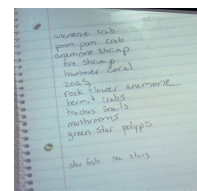 anemone crab
pom pom crab
anemone shrimp
fire shrimp
hammer coral
zoas
rock flower anemone
hermit crabs
trochus snails
mushrooms
green star polyps
star fish sea stars